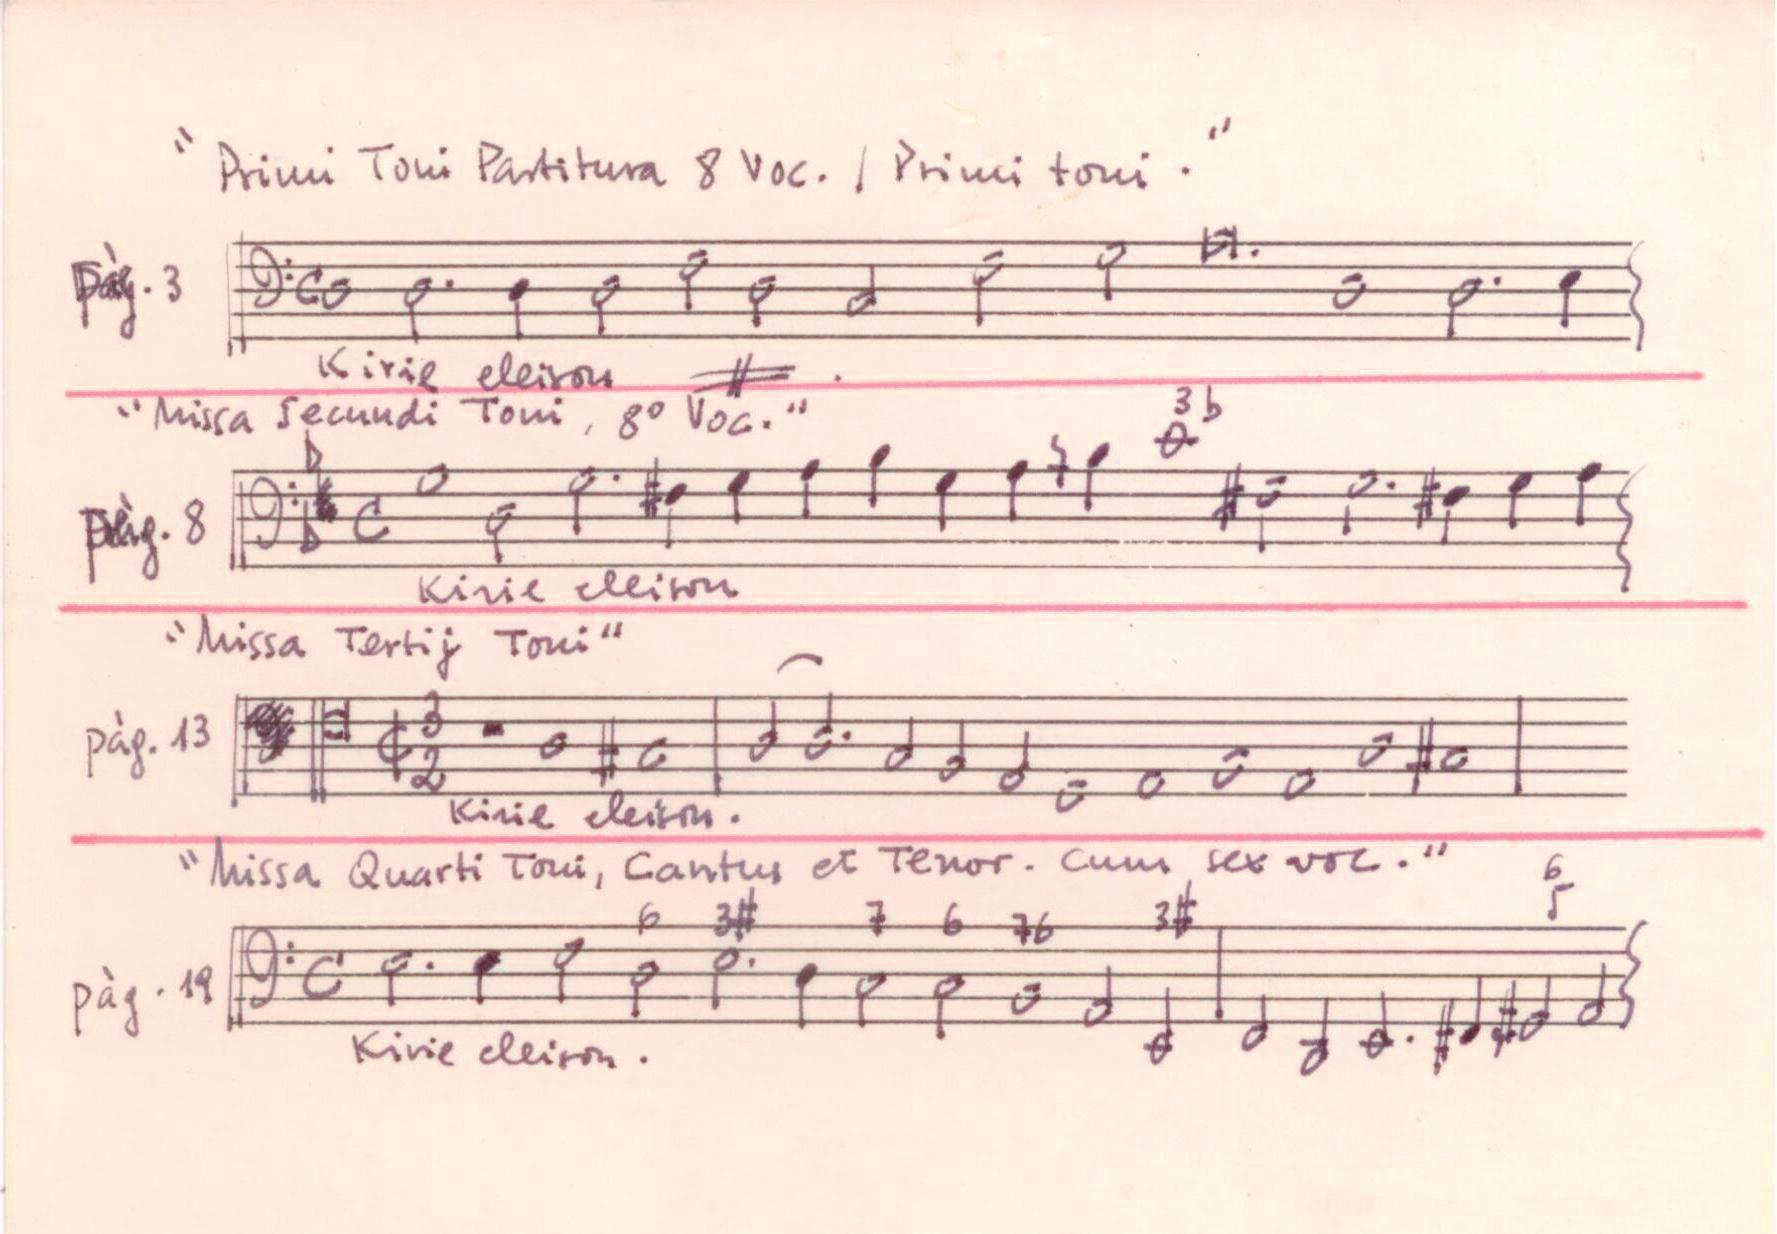 "Primi Toni Partitura 8 Voc. / Primi toni."
pàg. 3
Kirie eleison
"Missa Secundi Toni, 8º Voc."
3b
pàg. 8
Kirie eleison
"Missa Tertij Toni"
pàg. 13
3
2
Kirie eleison.
"Missa Quarti Toni, Cantus et Tenor. Cum sex voc."
6 3# 7 6 76 3# 6
5
pàg. 19
Kirie eleison.